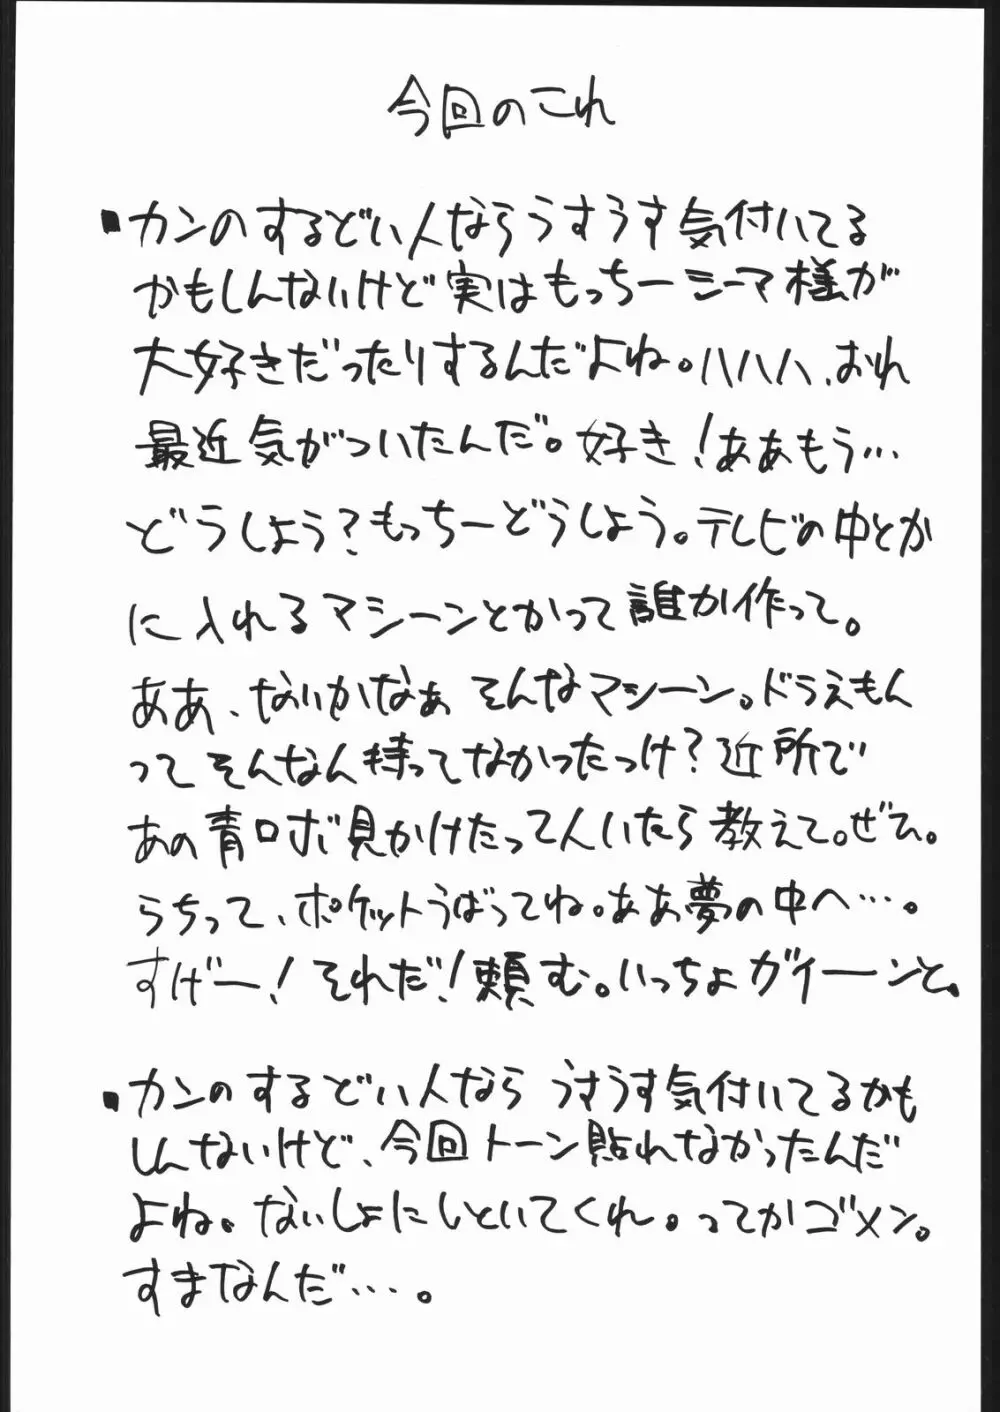 今回のこれ
■カンのするどい人ならうすうす気付いてる
かもしんないけど実はもっちーシーマ様が
大好きだったりするんだよね。ハハハ、おれ
最近気がついたんだ。好き!ああもう…
どうしよう?もっちーどうしよう。テレビの中とか
に入れるマシーンとかって誰か作って。
ああ、ないかなぁそんなマシーン。ドラえもん
ってそんなん持ってなかったっけ?近所で
あの青ロボ見かけたって人いたら教えて。ぜひ。
らちって、ポケットうばってね。ああ夢の中へ…。
すげー!それだ!頼む。いっちょガイーンと。
■カンのするどい人ならうすうす気付いてるかも
しんないけど、今回トーン貼れなかったんだ
よね。ないしょにしといてくれ。ってかゴメン。
すまなんだ…。